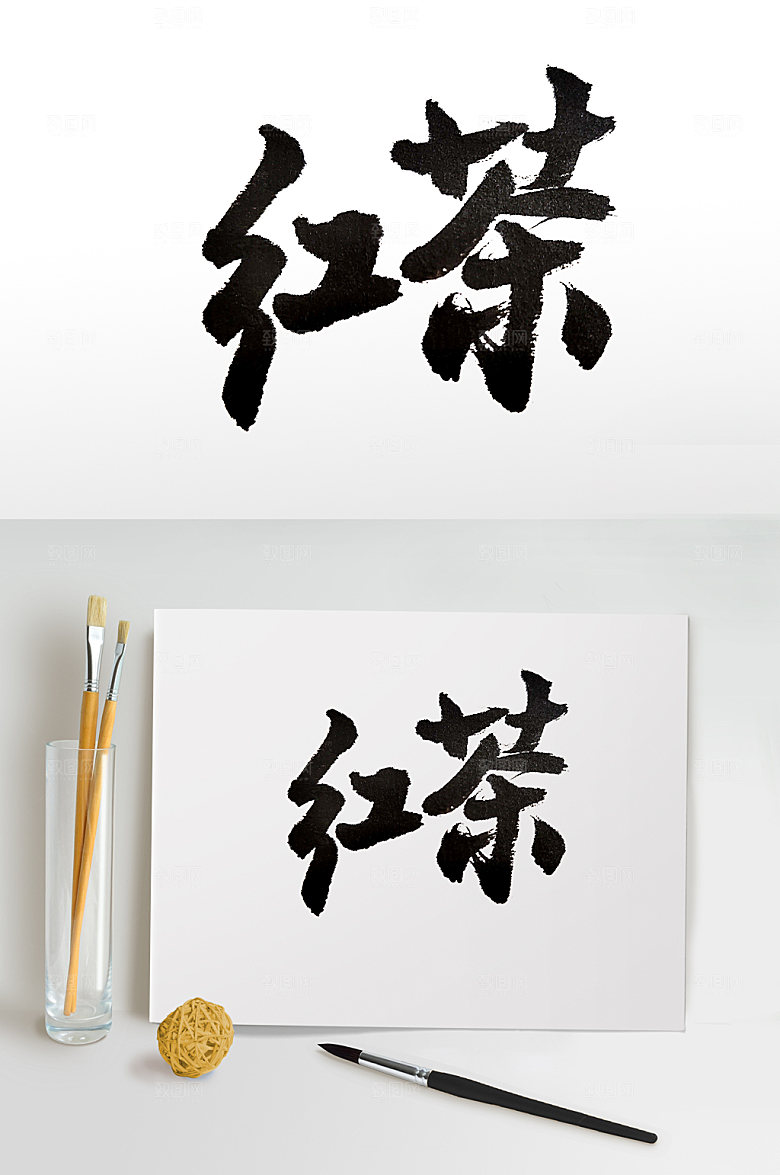 红茶
红茶